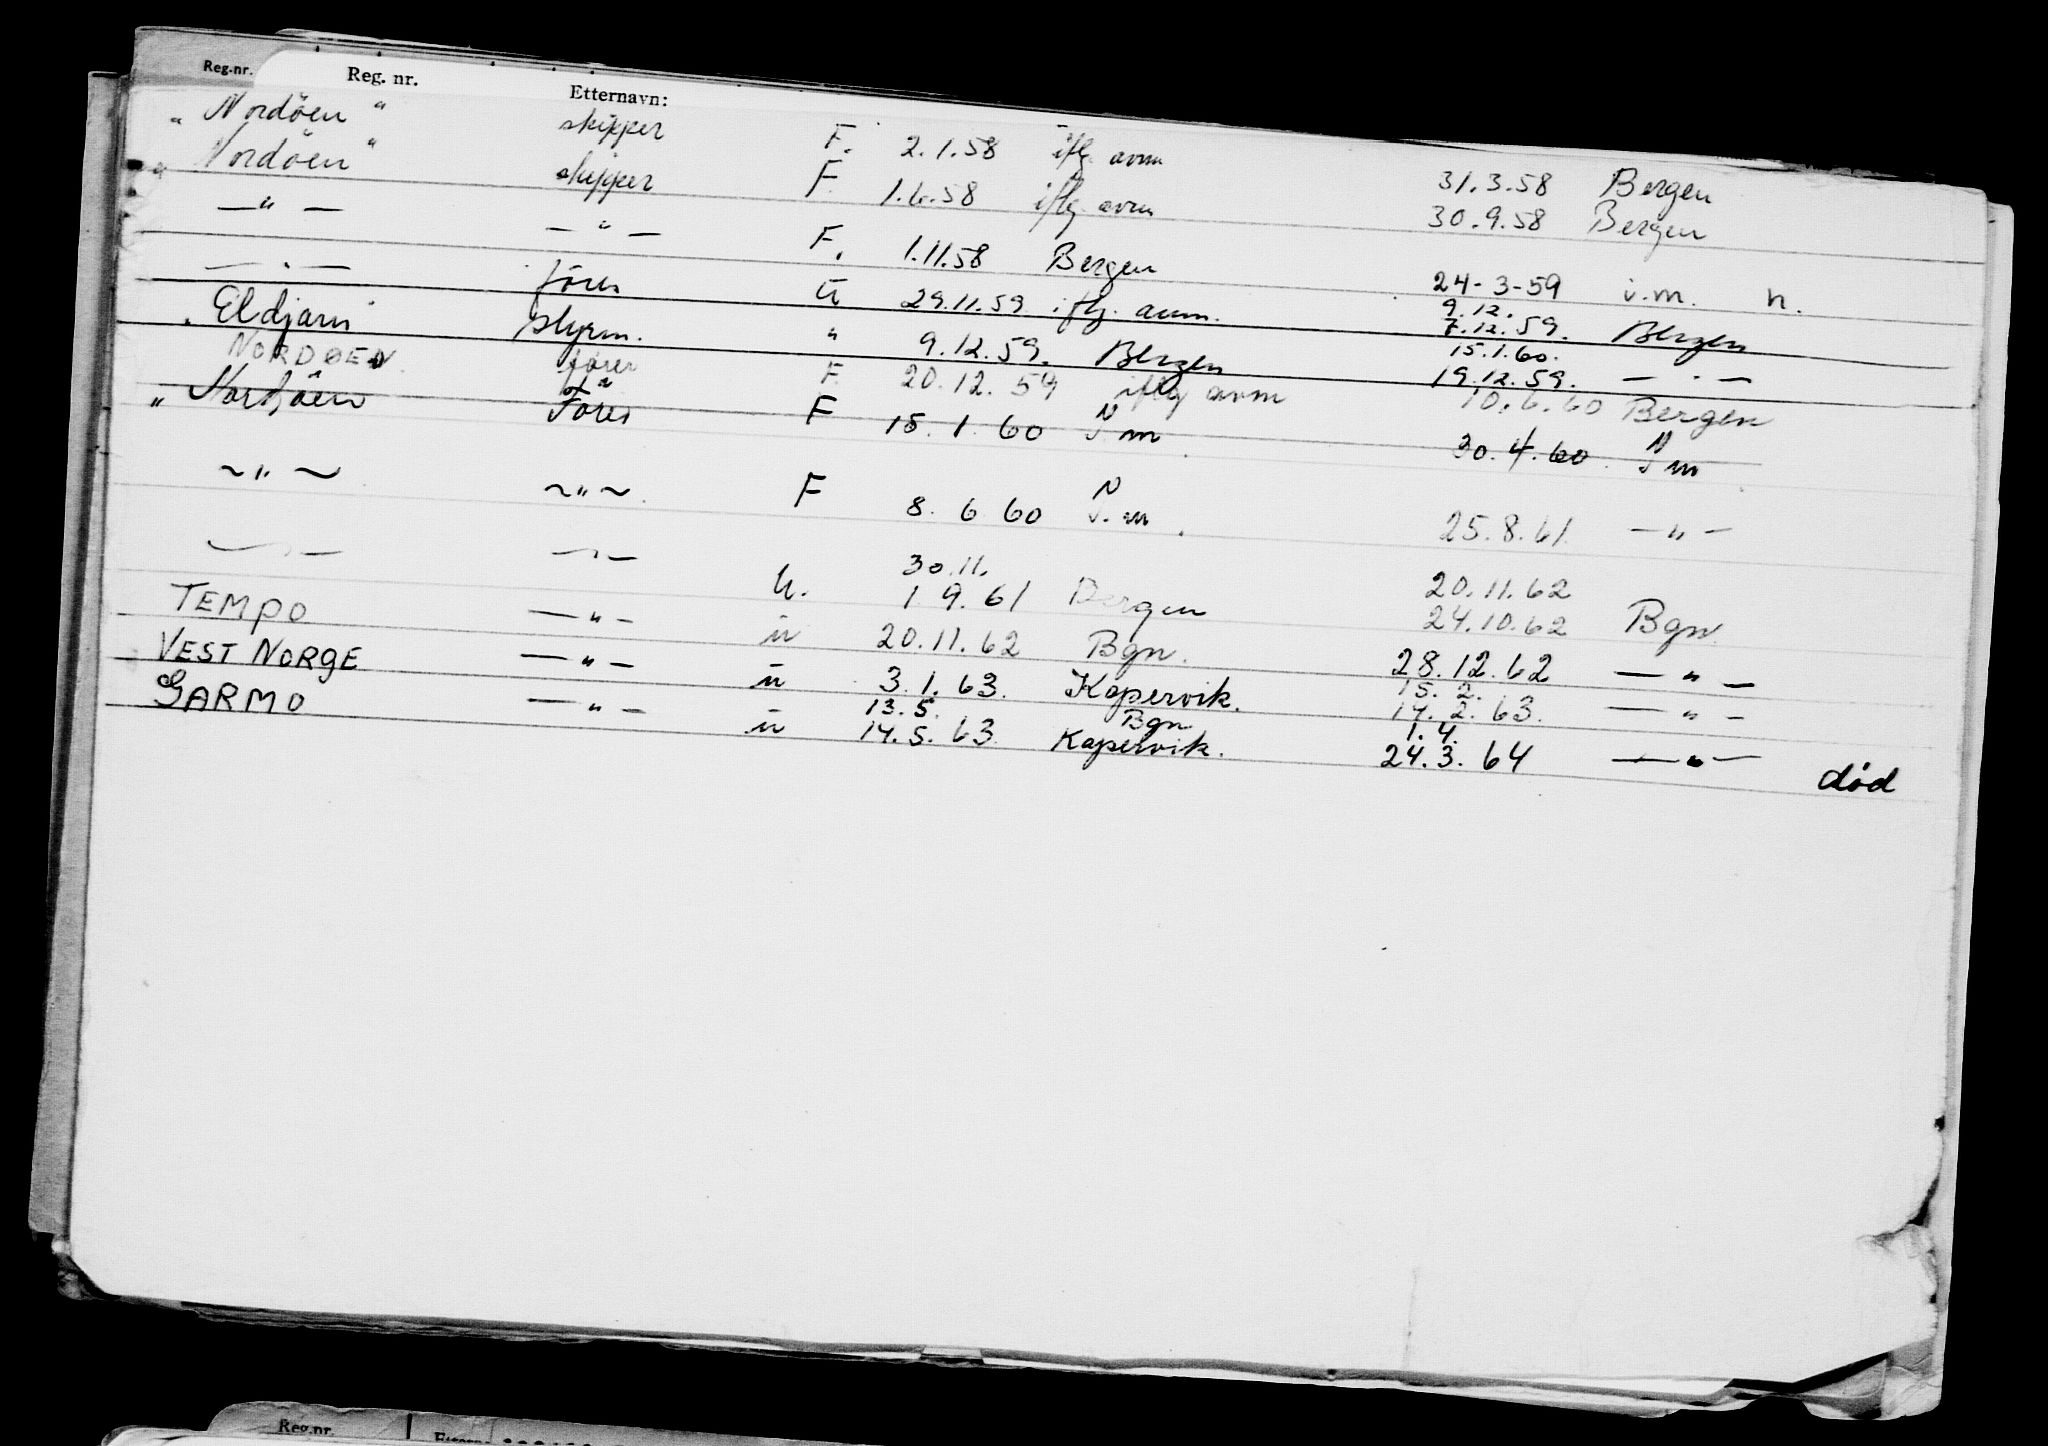 Reg.nr. Reg. nr. Etternavn:
"Nordöen" skipper F. 2.1.58 iflg. avm 31.3.58 Bergen
"Nordöen" skipper F 1.6.58 iflg. avm 30.9.58 Bergen
— " — — " — F. 1.11.58 Bergen 24-3-59 i.m. n.
— " — förer U 29.11.59. iflg. avm. 9.12. 7.12.59. Bergen
Eldjarn styrm. " 9.12.59. Bergen 15.1.60. 19.12.59. — " —
NORDØEN förer F. 20.12.59 iflg avm 10.6.60 Bergen
"Nordöen Förer F 15.1.60 N i.m 30.4.60. N i.m
~ " ~ ~ " ~ F 8.6.60 N i.m. 25.8.61 — " —
— " — — " — U. 30.11. 1.9.61 Bergen 20.11.62 24.10.62 Bgn
TEMPO — " — u 20.11.62 Bgn. 28.12.62 — " —
VEST NORGE — " — u 3.1.63. Kopervik. 15.2. 14.2.63. — " —
GARMO — " — u 13.5. 14.5.63 Bgn Kopervik. 1.4. 24.3.64 — " — död
Reg.nr.